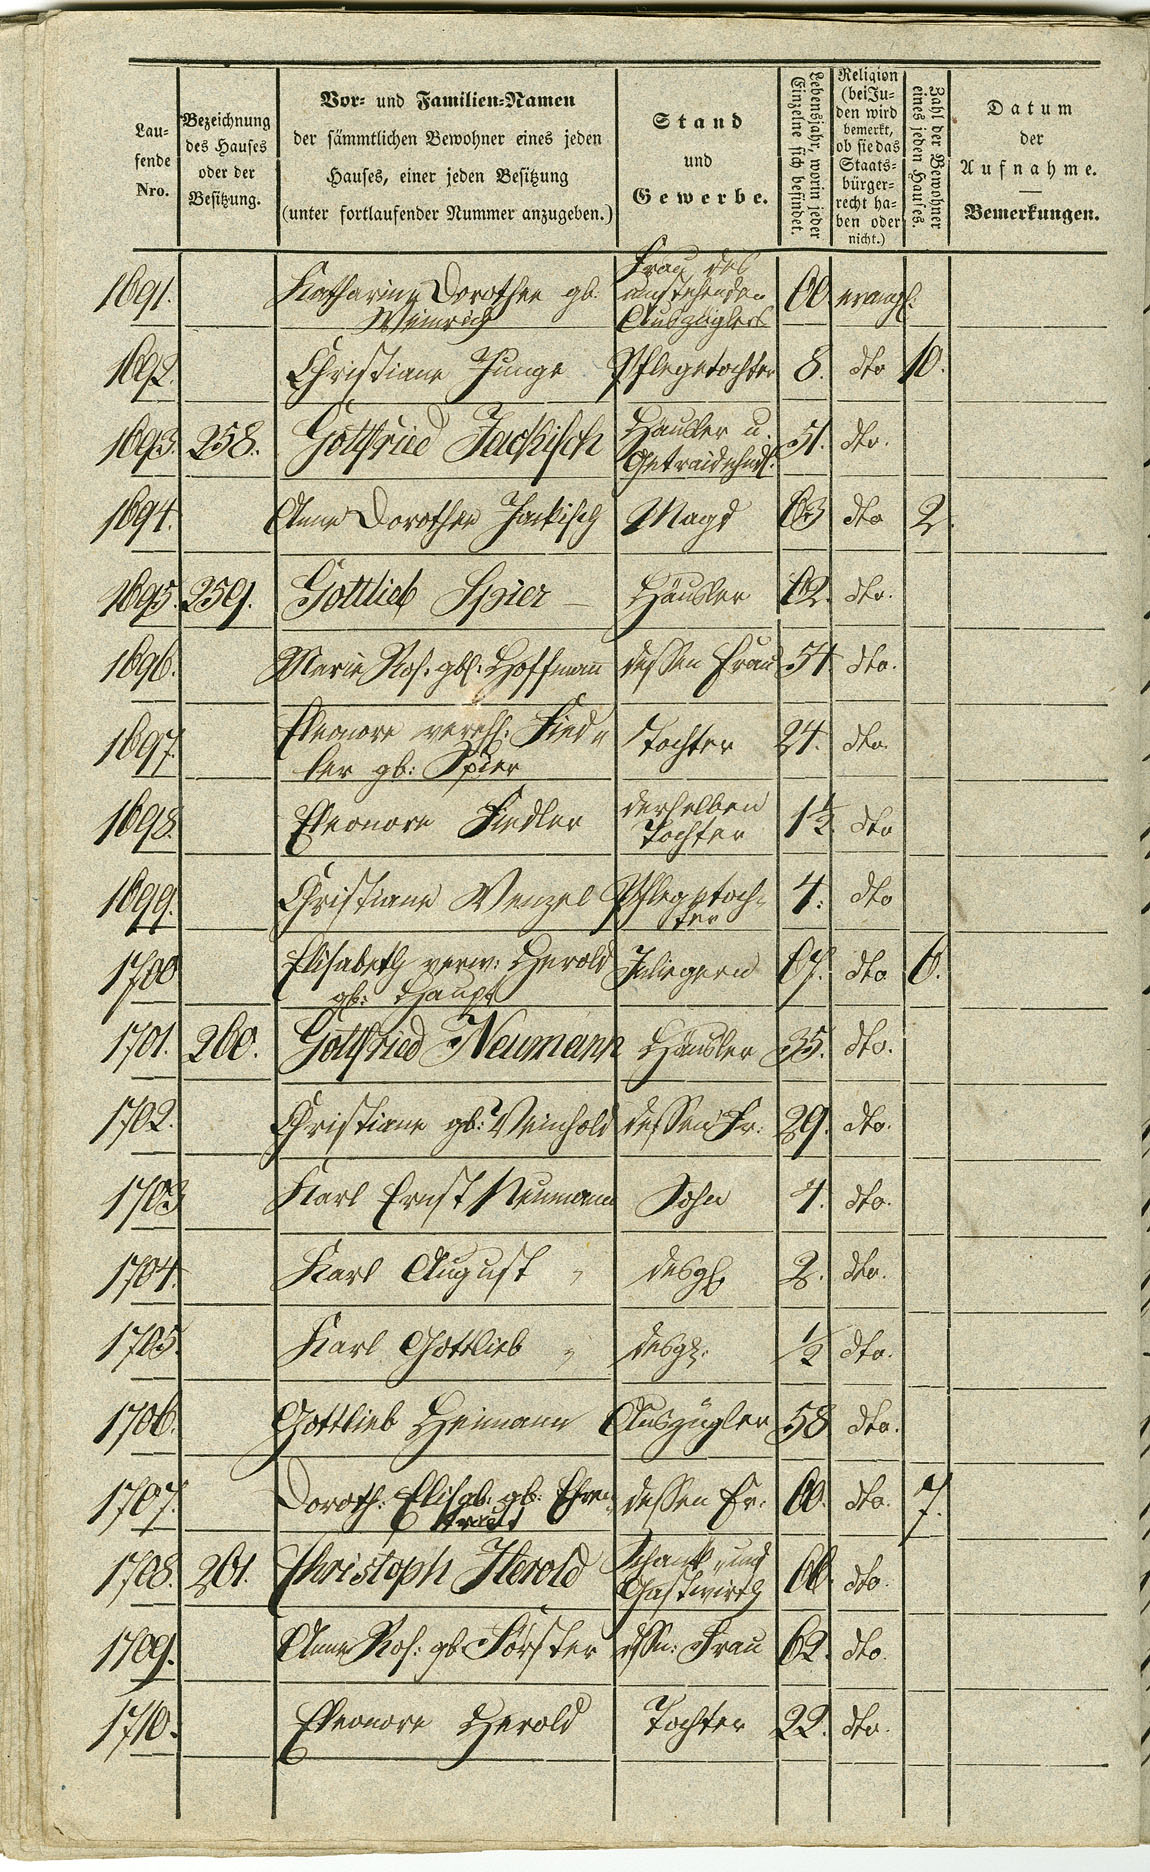 Lau-
fende
Nro.
Bezeichnung
des Hauses
oder der
Besitzung.
Vor- und Familien-Namen
der sämmtlichen Bewohner eines jeden
Hauses, einer jeden Besitzung
(unter fortlaufender Nummer anzugeben.)
Stand
und
Gewerbe.
Lebensjahr, worin jeder
Einzelne sich befindet.
Religion
(bei Ju-
den wird
bemerkt,
ob sie das
Staats-
bürger-
recht ha-
ben oder
nicht.)
Zahl der Bewohner
eines jeden Hauses.
Datum
der
Aufnahme.
Bemerkungen.
Frau des
1691. Katharina Dorothea gb. umstehenden 60 evangl.
Weinrich Auszüglers
1692. Christiane Junge Pflegetochter 8. dto 10.
1693. 258. Gottfried Jackisch Häusler u. 51. dto.
Getraidehndl.
1694. Anne Dorothea Jackisch Magd 63 dto 2.
1695. 259. Gottlieb Spier Häusler 62. dto.
1696. Marie Ros. gb. Hoffmann dessen Frau 54. dto.
1697. Eleonore verehl. Fied- Tochter 24. dto.
ler gb: Spier
1698. Eleonore Fiedler derselben 1½. dto
Tochter
1699. Christiane Wenzel Pflegetoch- 4. dto
ter
1700 Elisabeth verw. Herold Inliegerin 67. dto 6.
gb: Haupt
1701. 260. Gottfried Neumann Häusler 35. dto.
1702. Christiane gb: Weinhold dessen Fr. 29. dto.
1703 Karl Ernst Neumann Sohn 4. dto.
1704. Karl August " desgl 2. dto.
1705. Karl Gottlieb " desgl. ½ dto.
1706. Gottlieb Heimann Auszügler 58 dto.
1707. Doroth. Elisab. gb. Ehren- dessen Fr. 60. dto. 7.
traut
1708. 261. Christoph Herold Schank und 66. dto.
Gastwirth
1709. Anne Ros: gb Förster dssn. Frau 62. dto.
1710. Eleonore Herold Tochter 22. dto.